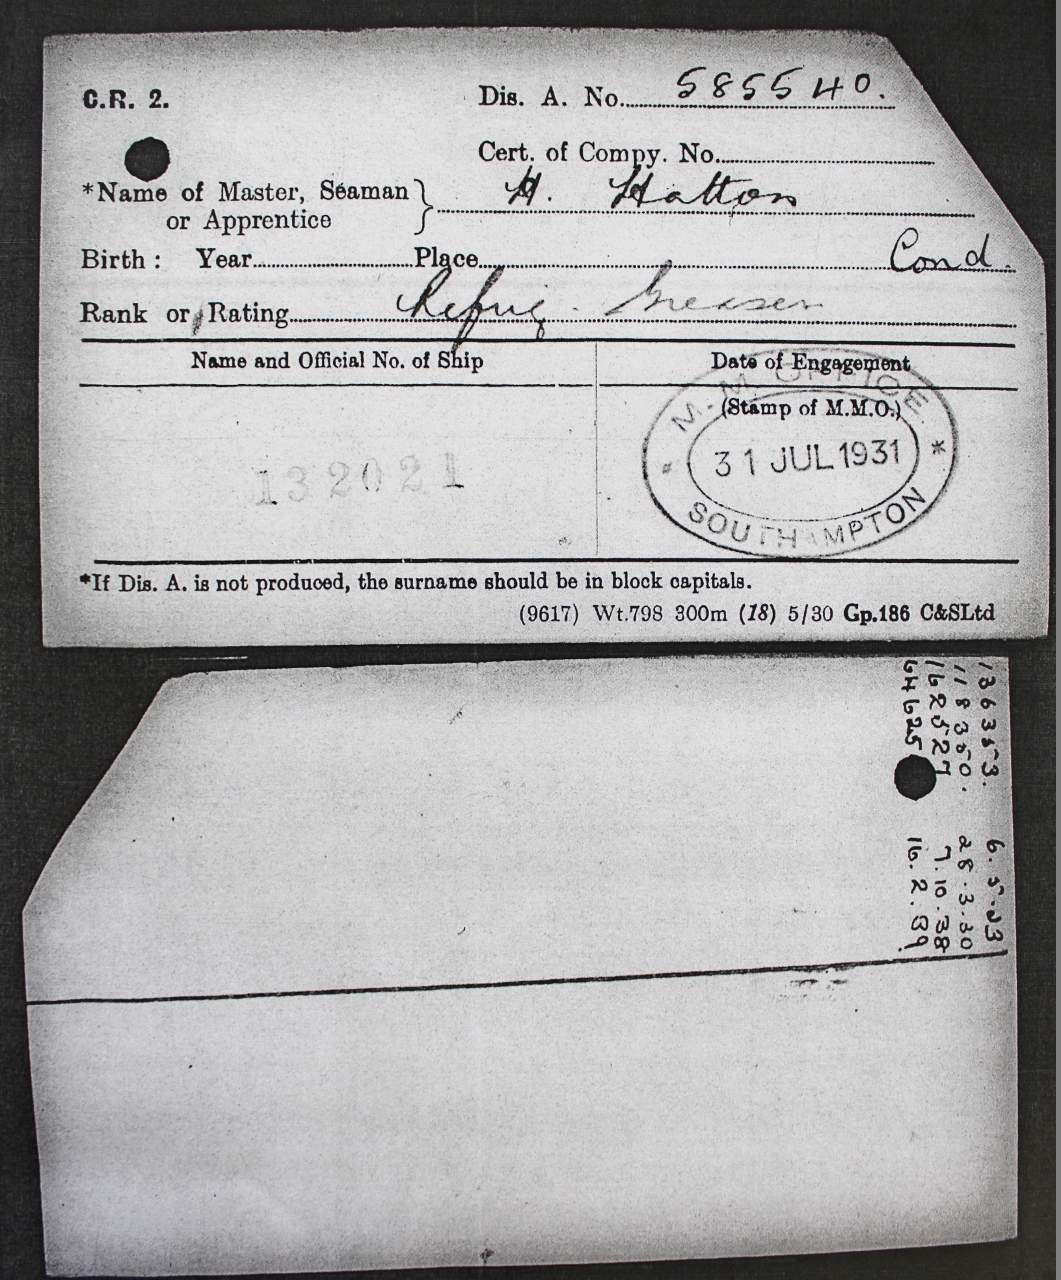 C.R. 2.
Dis. A. No. 585540.
Cert. of Compy. No.
*Name of Master, Seaman
or Apprentice
H. Hatton
Birth : Year Place Cond.
Rank or Rating Refrig. Greaser
Name and Official No. of Ship
Date of Engagement
(Stamp of M.M.O.)
M.M. OFFICE
31 JUL 1931
SOUTHAMPTON
132021
*If Dis. A. is not produced, the surname should be in block capitals.
(9617) Wt.798 300m (18) 5/30 Gp.186 C&SLtd
136353. 6.5.33
118350. 28.3.30
162527 7.10.38
64625 16.2.39